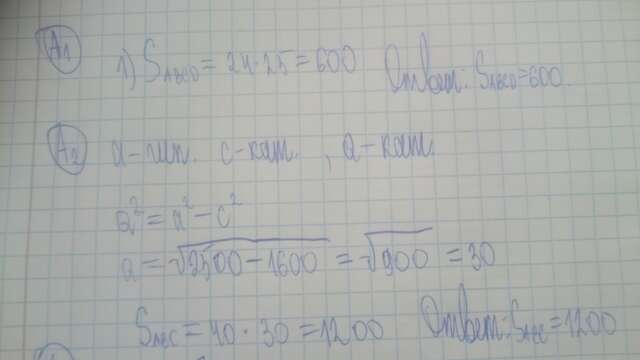 А1
1) SABCD = 24·25 = 600 Ответ: SABCD = 600.
А2 х – гип. с – кат. , а – кат.
a² = х² – c²
a = √2500 – 1600 = √900 = 30
SABC = 40 · 30 = 1200 Ответ: SABC = 1200